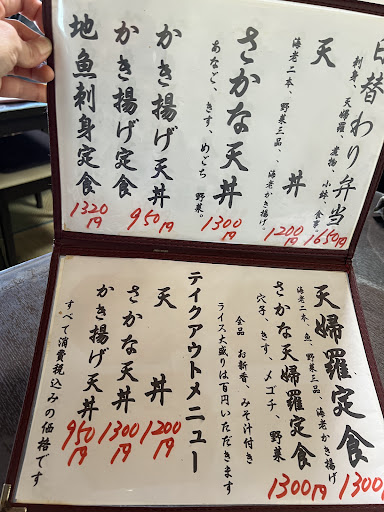 日替わり弁当
刺身、天婦羅、煮物、小鉢、食事。
1650円
天丼
海老二本、野菜三品、、海老かき揚げ。
1200円
さかな天丼
あなご、きす、めごち、野菜。
1300円
かき揚げ天丼
かき揚げ定食
950円
地魚刺身定食
1320円
天婦羅定食
海老二本、魚、野菜三品、海老かき揚げ
1300
さかな天婦羅定食
穴子、きす、メゴチ、野菜
1300円
全品 お新香、みそ汁付き
ライス大盛りは百円いただきます
テイクアウトメニュー
天丼
1200円
さかな天丼
1300円
かき揚げ天丼
950円
すべて消費税込みの価格です